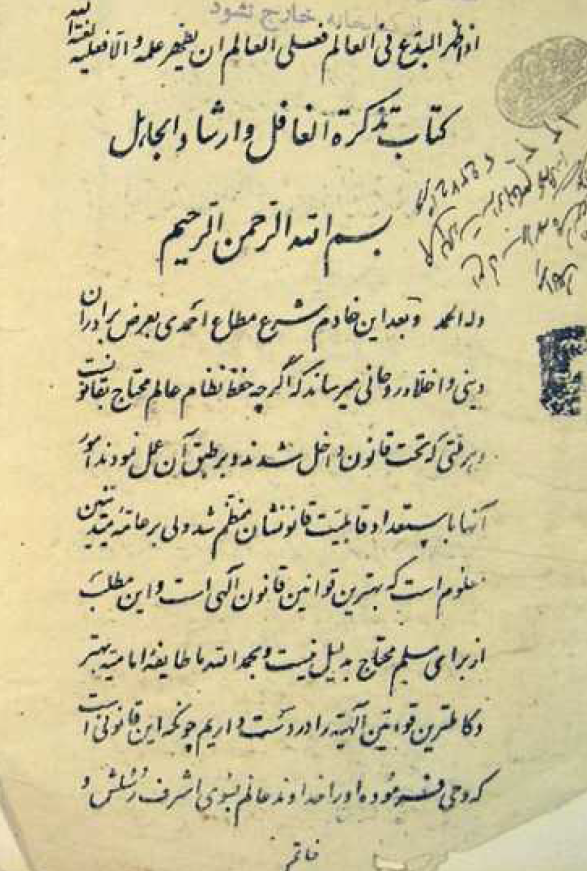 خارج نشود
اذا ظهر البدع فی العالم فعلی العالم ان یظهر علمه والا فعلیه لعنة الله
کتاب تذکرة الغافل وارشاد الجاهل
بسم الله الرحمن الرحیم
وله الحمد وبعد این خادم شرع مطاع احمدی بعرض برادران
دینی و اخلاء روحانی میرساند که اگرچه حفظ نظام عالم محتاج بقانونست
وهر ملتی که تحت قانون داخل شدند و بر طبق آن عمل نمودند امور
آنها باستعداد قابلیت قانونشان منظم شد ولی بر عامهٔ متدینین
معلوم است که بهترین قوانین قانون الهی است و این مطلب
از برای مسلم محتاج بدلیل نیست و بحمد الله ما طایفهٔ امامیه بهتر
وکاملترین قوانین الهیه را در دست داریم چونکه این قانونی است
که وحی فرموده او را خداوند عالم بسوی اشرف رسلش و
خاتم